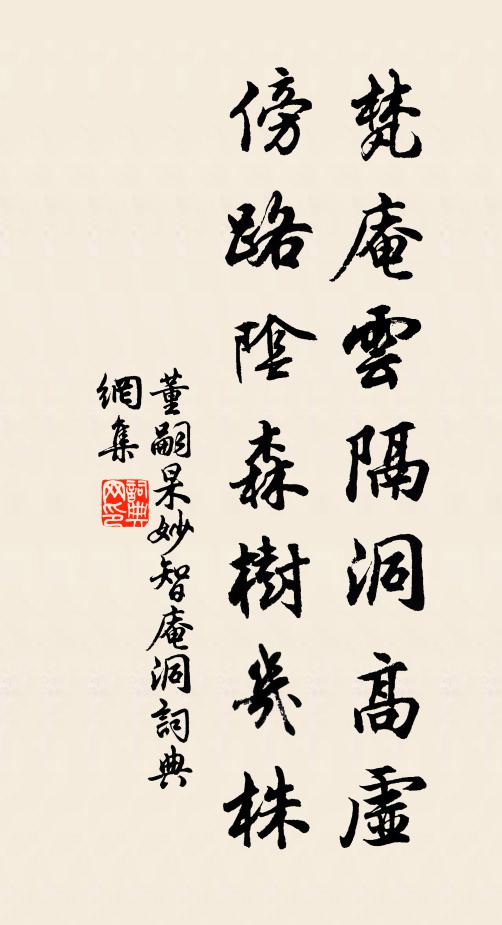 梵庵雲隔洞高虛
傍路陰森樹幾株
董嗣杲妙智庵洞詞典
網集
詞典
网印